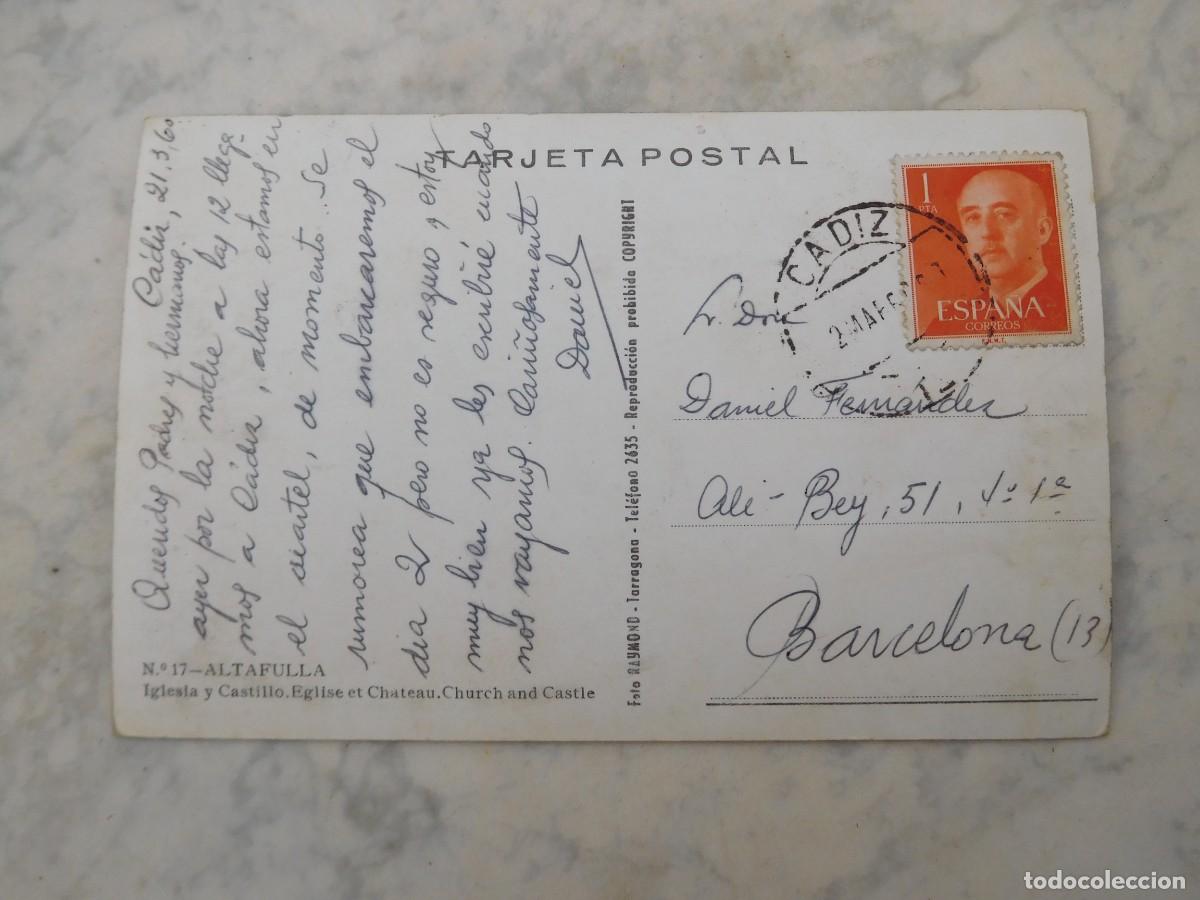 TARJETA POSTAL
Cádiz, 21.3,60
Queridos Padres y hermanos.
ayer por la noche a las 12 llega-
mos a Cádiz, ahora estamos en
el cuartel, de momento. Se
rumorea que embarcaremos el
dia 2 pero no es seguro y estoy
muy bien ya les escribiré cuando
nos vayamos. Cariñosamente
Daniel
Nº 17—ALTAFULLA
Iglesia y Castillo. Eglise et Chateau. Church and Castle
Foto RAYMOND - Tarragona - Teléfono 2635 - Reproducción prohibida COPYRIGHT
1
PTA
ESPAÑA
CORREOS
F.N.M.T.
CADIZ
Sr. Don
Daniel Fernández
Ali-Bey, 51, 4º 1ª
Barcelona (13)
todocoleccion